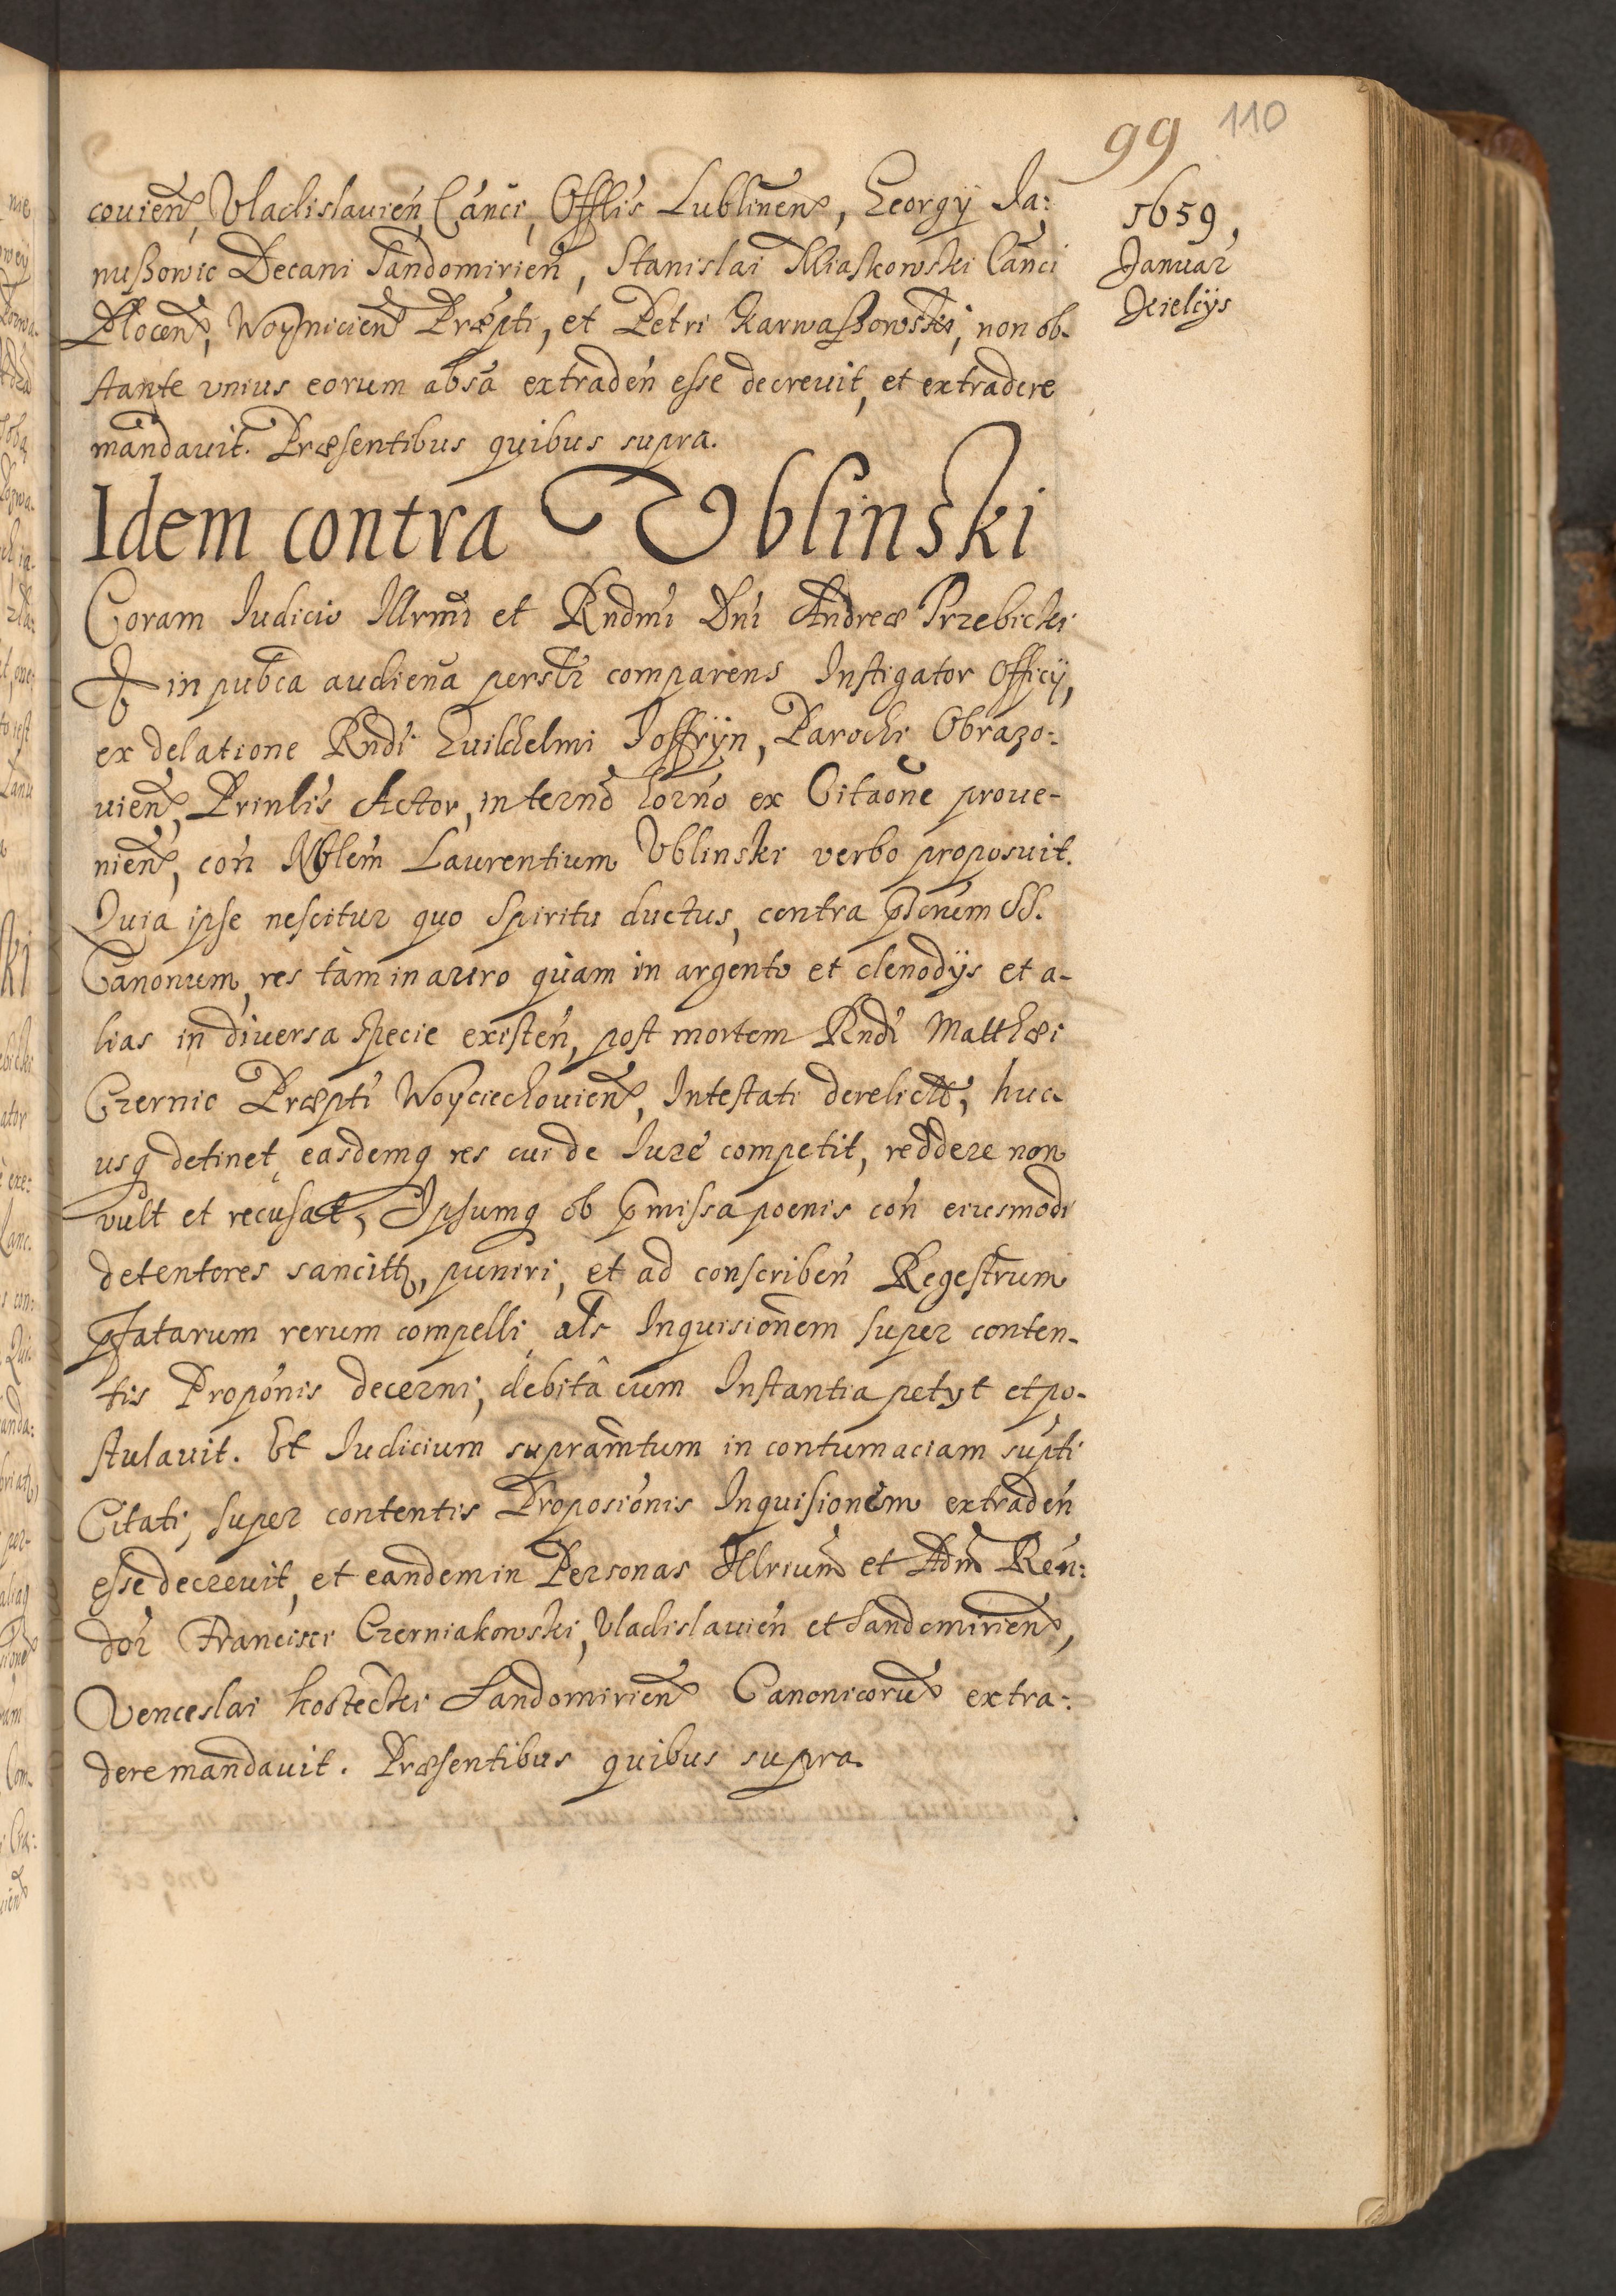 99 110
1659,
Januar
Kielcijs
couien, Vladislauien Canci, Offlis Lublinen, Georgij Ja:
nußowic Decani Sandomirien, Stanislai Miaskowski Canci
Plocen, Woynicien Præpti, et Petri Karwaßowski, non ob-
stante vnius eorum absa extraden esse decreuit, et extradere
mandauit. Præsentibus quibus supra.
Idem contra Vblinski
Coram Judicio Illrmi et Rndmi Dni Andreæ Trzebicki
in pubca audiena persltr comparens Instigator Officij,
ex delatione Rndi Guilhelmi Joffryn, Parochi Obrazo:
uien, Prinlis Actor, in termo horno ex Citaone proue-
nien, con Nblem Laurentium Vblinski verbo proposuit.
Quia ipse nescitur quo Spiritu ductus, contra SS.
Canonum, res tàm in auro quàm in argento et clenodijs et a-
lias in diuersa specie existen, post mortem Rndi Matthæi
Czernic Præpti Woyciechouien, Intestati derelictas, huc-
usq detinet, easdemq res cui de Jure competit, reddere non
vult et recusat, Ipsumq ob pmissa poenis con eiusmodi
detentores sancitt, puniri, et ad conscriben Regestrum
pfatarum rerum compelli, als Inquisionem super conten-
tis Proponis decerni, debitâ cum Instantia petyt et po-
stulauit. Et Judicium supramtum in contumaciam supti
Citati, super contentis Proposionis Inquisionem extraden
esse decreuit, et eandem in Personas Illrium et Adm Ren:
dor Francisci Czerniakowski, Vladislauien et Sandomirien,
Venceslai Kostecki Sandomirien Canonicorum extra:
dere mandauit. Præsentibus quibus supra.